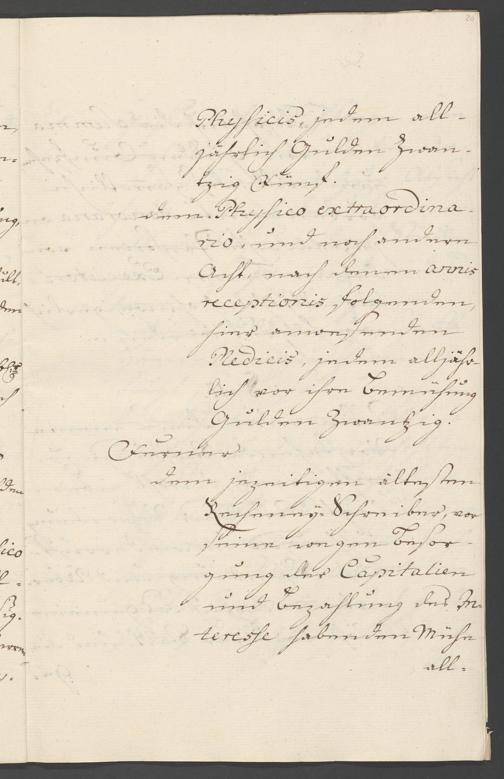 20
Physicis, jedem all-
jährlich Gulden Zwan-
tzig Fünf.
dem Physico extraordina-
rio, und noch andern
Acht, nach denen annis
receptionis, folgenden,
hier anwesenden
Medicis, jedem alljähr-
lich vor ihre Bemühung
Gulden Zwantzig.
Ferner
dem jezeitigen ältesten
Recheney-Schreiber, vor
seine wegen Besor-
gung der Capitalien
und Bezahlung des In-
teresse habenden Mühe
all-